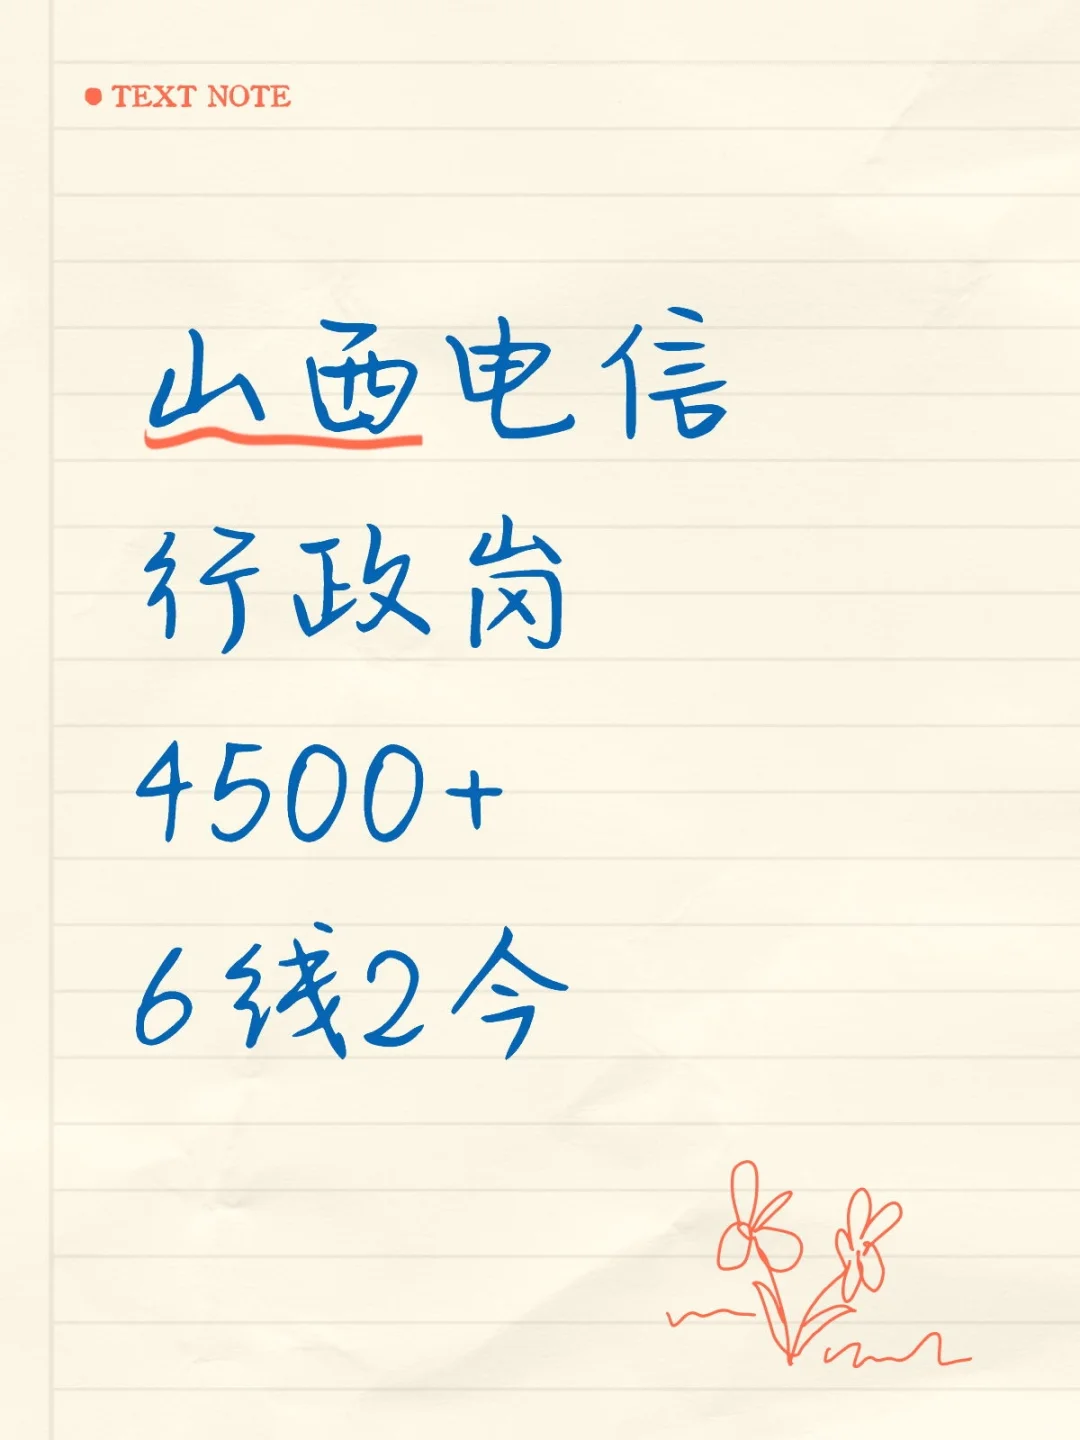 TEXT NOTE
山西电信
行政岗
4500+
6线2今